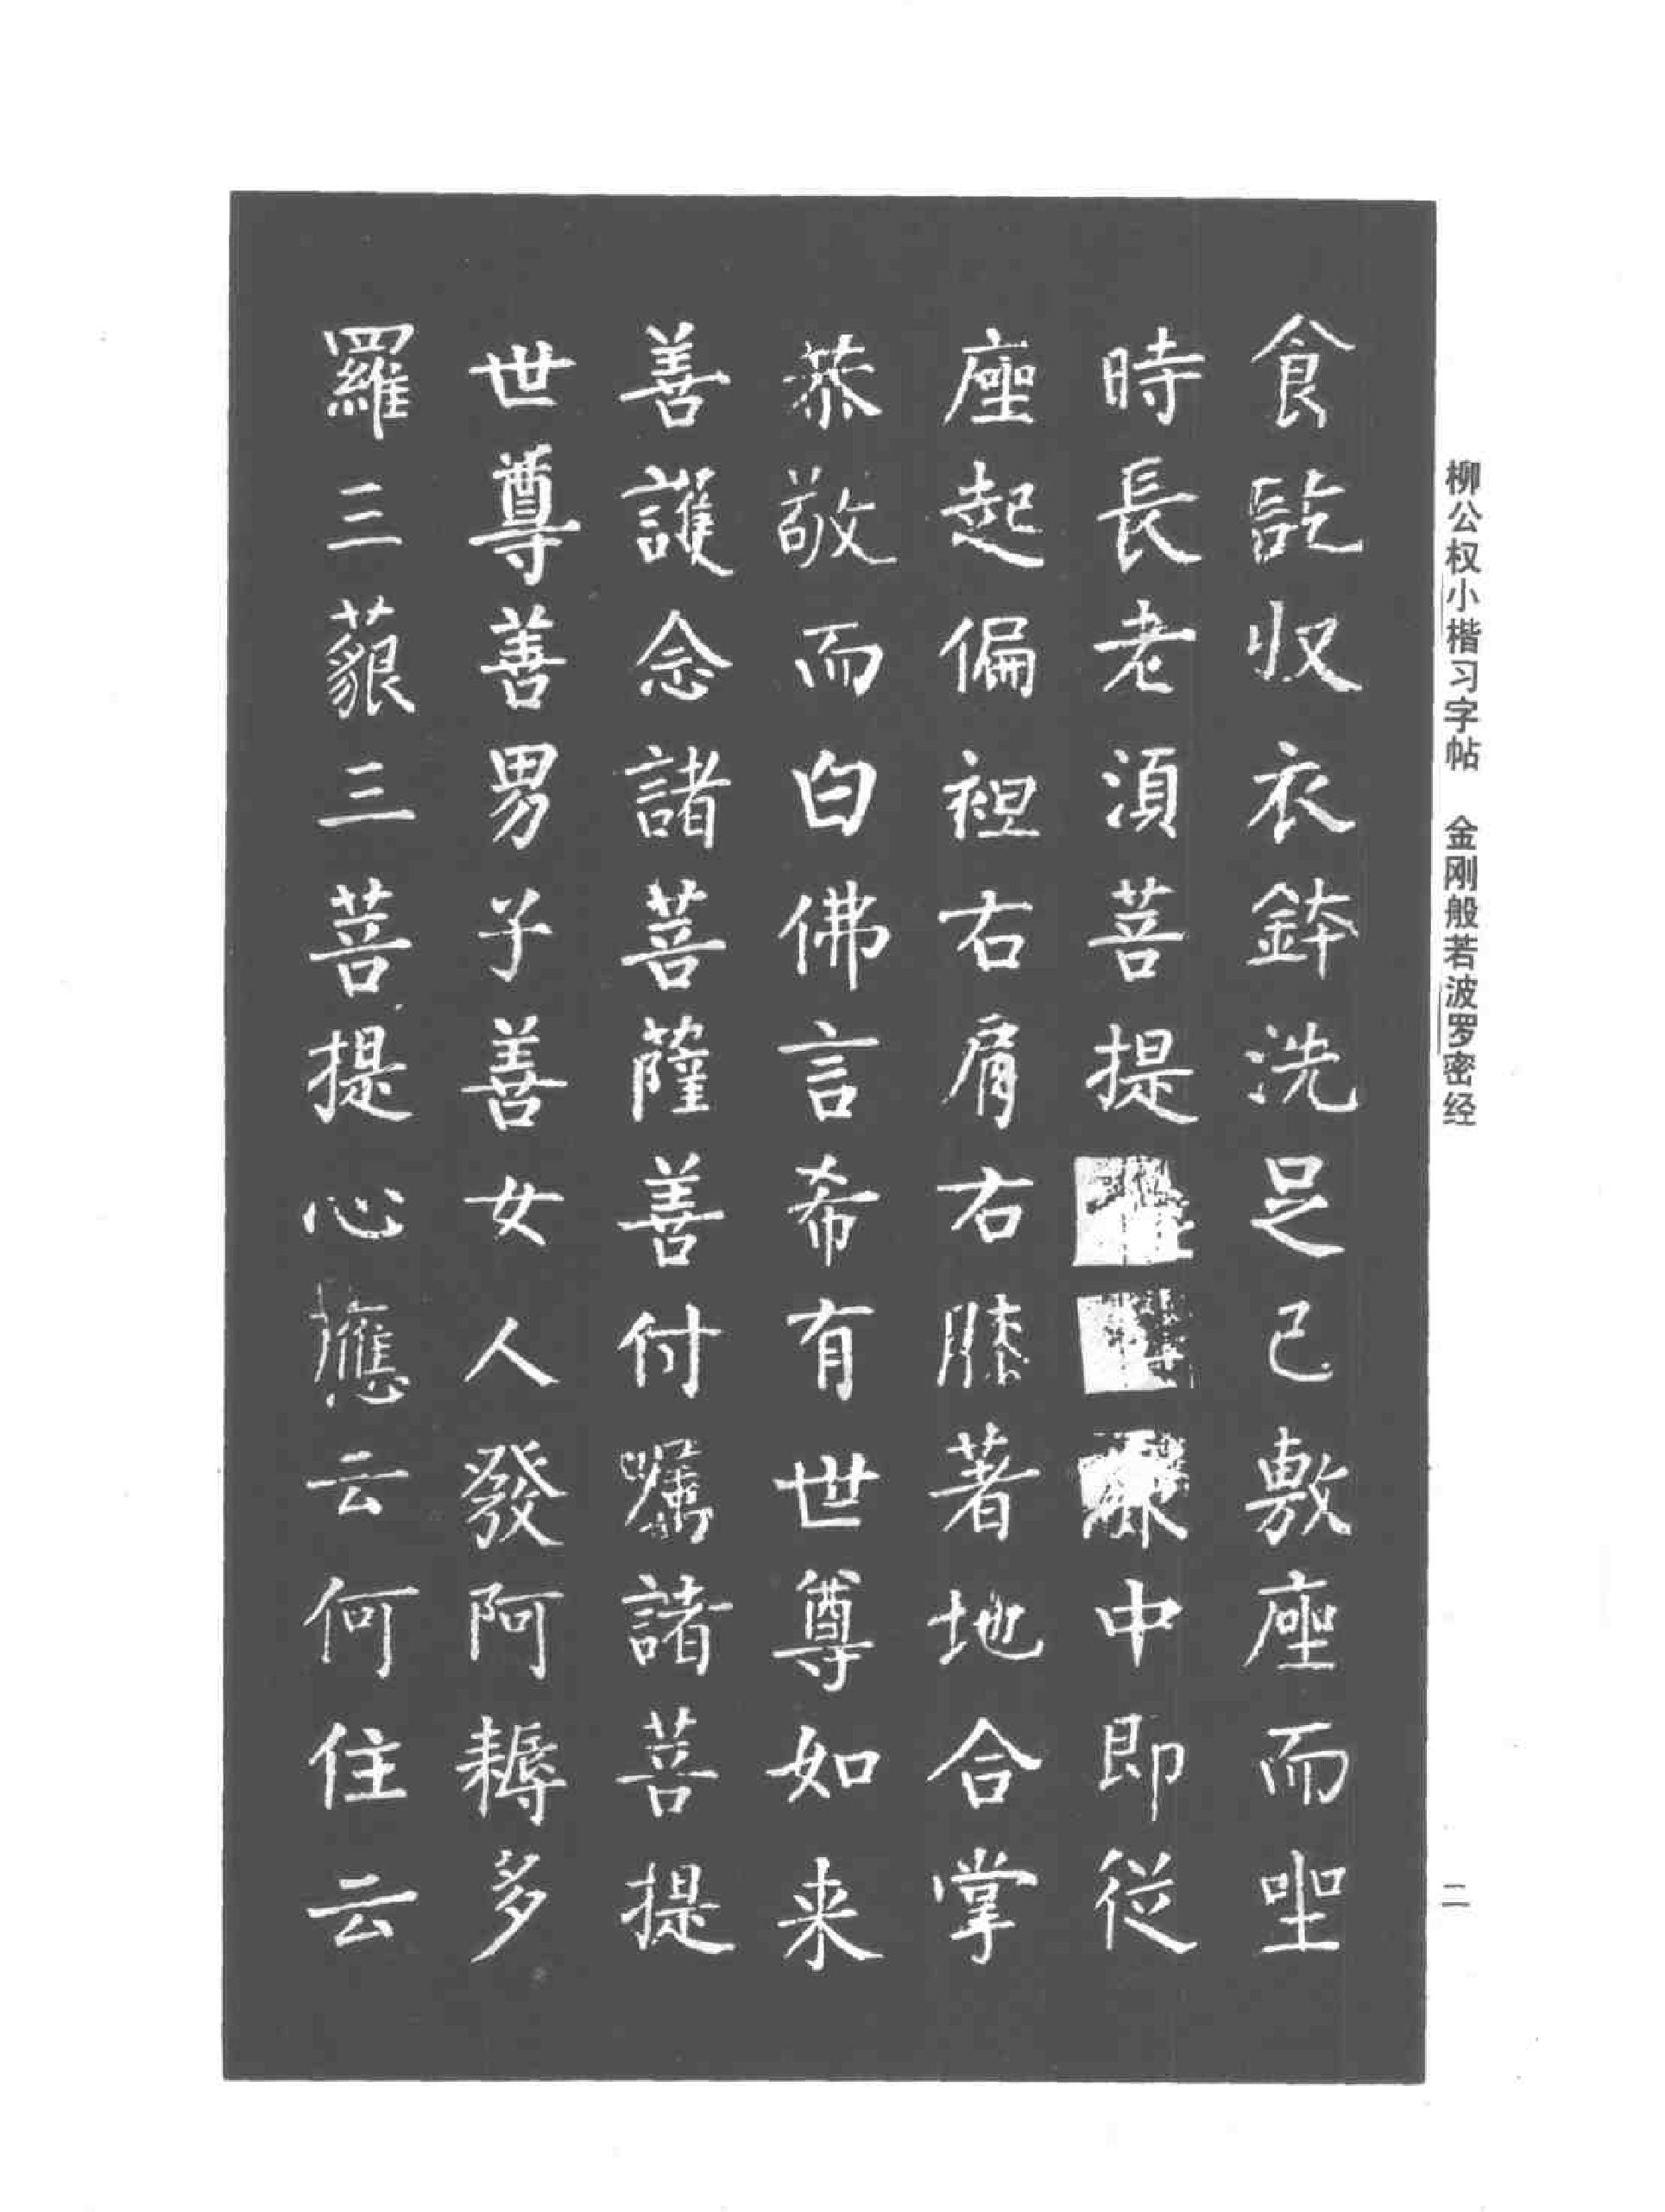 食訖収衣鉢洗足已敷座而坐
時長老湏菩提衆中即從
座起偏袒右肩右膝著地合掌
恭敬而白佛言希有世尊如来
善護念諸菩薩善付嘱諸菩提
世尊善男子善女人發阿耨多
羅三藐三菩提心應云何住云
柳公权小楷习字帖 金刚般若波罗密经
二